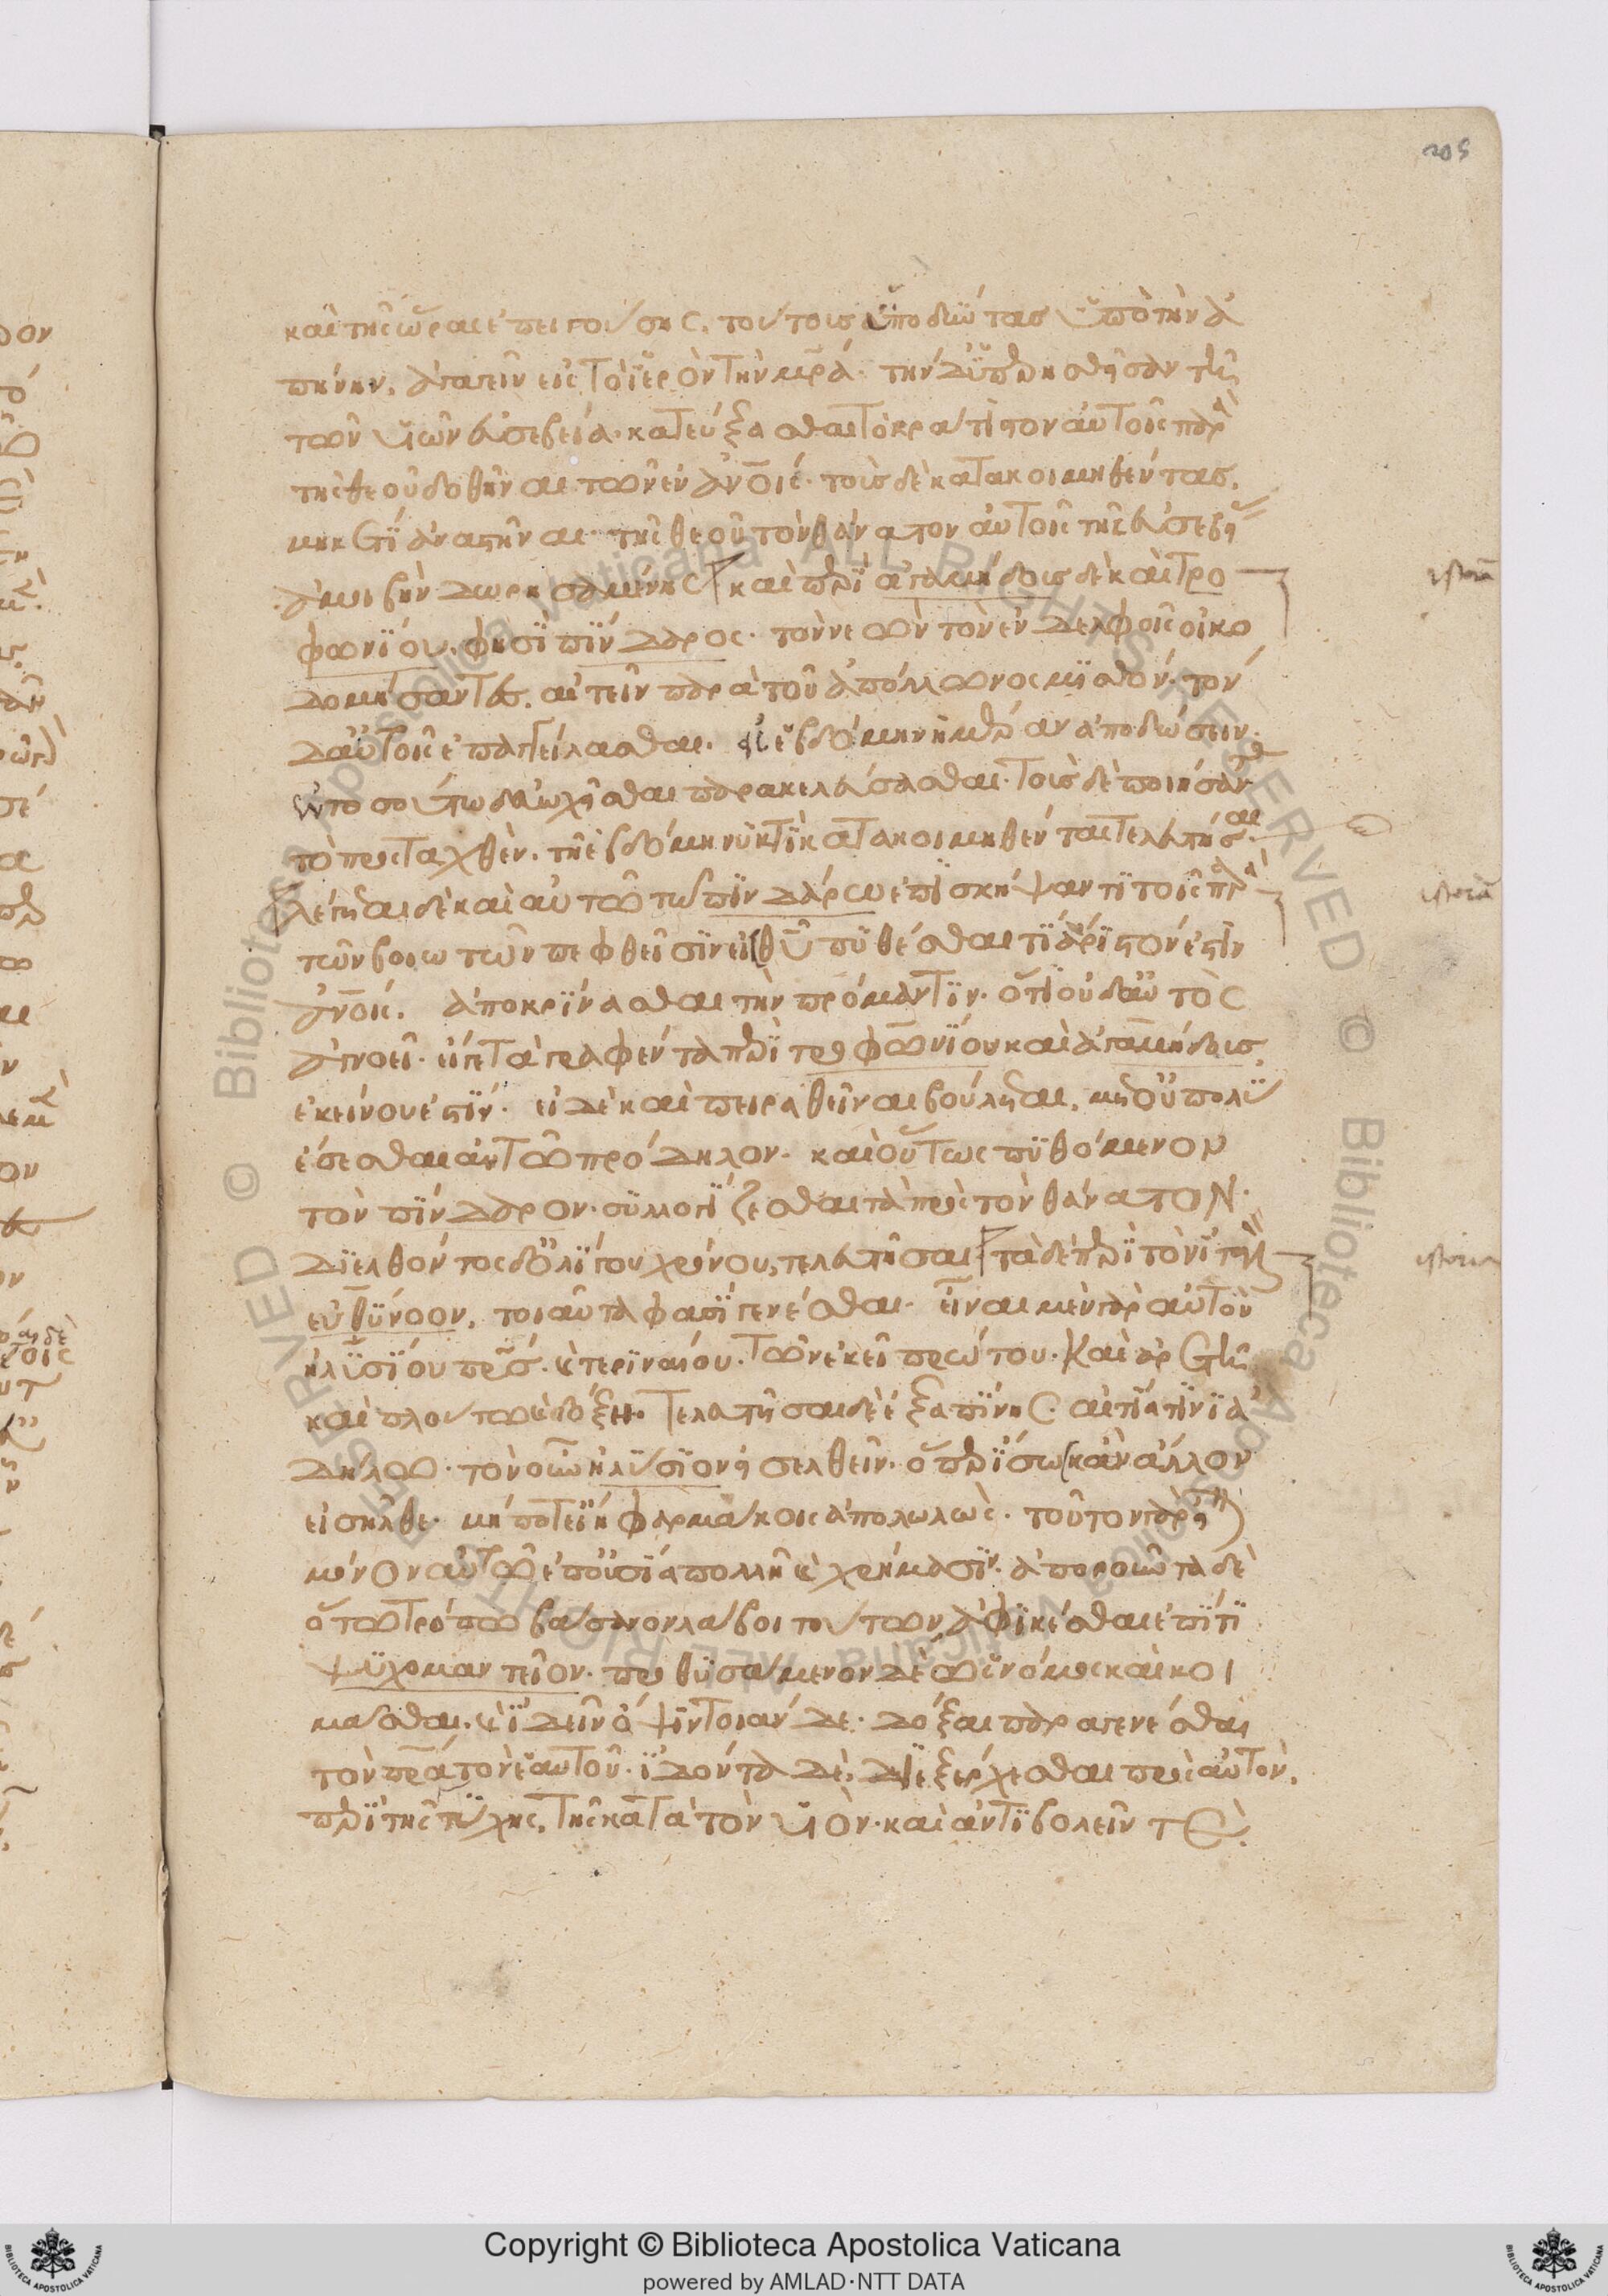 205
καὶ τῆς ὥρας ἐπειγούσης. τούτοις ὑποδύντας ὑπὸ τὴν ἀ
πήνην. ἀγαγεῖν εἰς τὸ ἱερὸν τὴν μρ̅α. τὴν δ' ὑπερησθεῖσαν τῆ
τῶν υἱῶν εὐσεβεία. κατεύξασθαι τὸ κράτιστον αὐτοῖς παρὰ
τῆς θεοῦ δοθῆναι τῶν ἐν ἀν̅οις. τοὺς δὲ κατακοιμηθέντας.
μηκέτι ἀναστῆναι τῆς θεοῦ τὸν θάνατον αὐτοῖς τῆς εὐσεβείας
ἀμοιβὴν δωρησαμένης καὶ περὶ ἀγαμήδους δὲ καὶ τρο
φωνίου. φησὶ πίνδαρος. τὸν νεὼν τὸν ἐν δελφοῖς οἰκο
δομήσαντας. αἰτεῖν παρὰ τοῦ ἀπόλλωνος μισθόν. τὸν
δ' αὐτοῖς ἐπαγγείλασθαι. εἰς ἑβδόμην ἡμέραν ἀποδώσειν.
ἐν τοσούτω δ' εὐωχεῖσθαι παρακελεύσασθαι. τοὺς δὲ ποιήσαντας
τὸ προσταχθέν. τῆ ἑβδόμη νυκτὶ κατακοιμηθέντας τελευτῆσαι
λέγεται δὲ καὶ αὐτῶ τῶ πινδάρω ἐπισκήψαντι τοῖς παρὰ
τῶν βοιωτῶν πεμφθεῖσιν εἰς θ̅υ πυθέσθαι τί ἄριστόν ἐστιν
ἀν̅οις. ἀποκρίνασθαι τὴν πρόμαντιν. ὅτι οὐδ' αὐτὸς
ἀγνοεῖ. εἴγε τὰ γραφέντα περὶ τροφωνίου καὶ ἀγαμήδους.
ἐκείνου ἐστίν. εἰ δὲ καὶ πειραθῆναι βούλεται. μετ' οὐ πολὺ
ἔσεσθαι αὐτῶ πρόδηλον. καὶ οὕτως πυθόμενον
τὸν πίνδαρον. συλλογίζεσθαι τὰ πρὸς τὸν θάνατον.
διελθόντος δ' ὀλίγου χρόνου, τελευτῆσαι τὰ δὲ περὶ τὸν ἰταλὸν
εὐθύνοον. τοιαῦτα φασὶ γενέσθαι. εἶναι μὲν γὰρ αὐτὸν
ἠλυσίου π̅ρς. τεριναίου. τῶν ἐκεῖ πρώτου. καὶ ἀρετῆ
καὶ πλούτω καὶ δόξη. τελευτῆσαι δὲ ἐξαπίνης. αἰτία τινὶ ἀ
δήλω. τὸν οὖν ἠλύσιον εἰσελθεῖν. ὅπερ ἴσως κἂν ἄλλον
εἰσῆλθε. μή ποτε εἴη φαρμάκοις ἀπολωλώς. τοῦτον γὰρ εἶναι
μόνον αὐτῶ ἐπ' οὐσία πολλῆ καὶ χρήμασιν. ἀποροῦντα δὲ
ὅτω τρόπω βάσανον λάβοι τούτων ἀφικέσθαι ἐπί τι
ψυχομαντεῖον. προθυσάμενον δὲ ὡς νόμος καὶ κοι
μᾶσθαι. καὶ ἰδεῖν ὄψιν τοιάνδε. δόξαι παραγενέσθαι
τὸν π̅ρα τὸν ἑαυτοῦ. ἰδόντα δὲ, διεξέρχεσθαι πρὸς αὐτὸν.
περὶ τῆς τύχης. τῆς κατὰ τὸν υἱόν. καὶ ἀντιβολεῖν τε
istoria
istoria
istoria
Copyright © Biblioteca Apostolica Vaticana
powered by AMLAD·NTT DATA